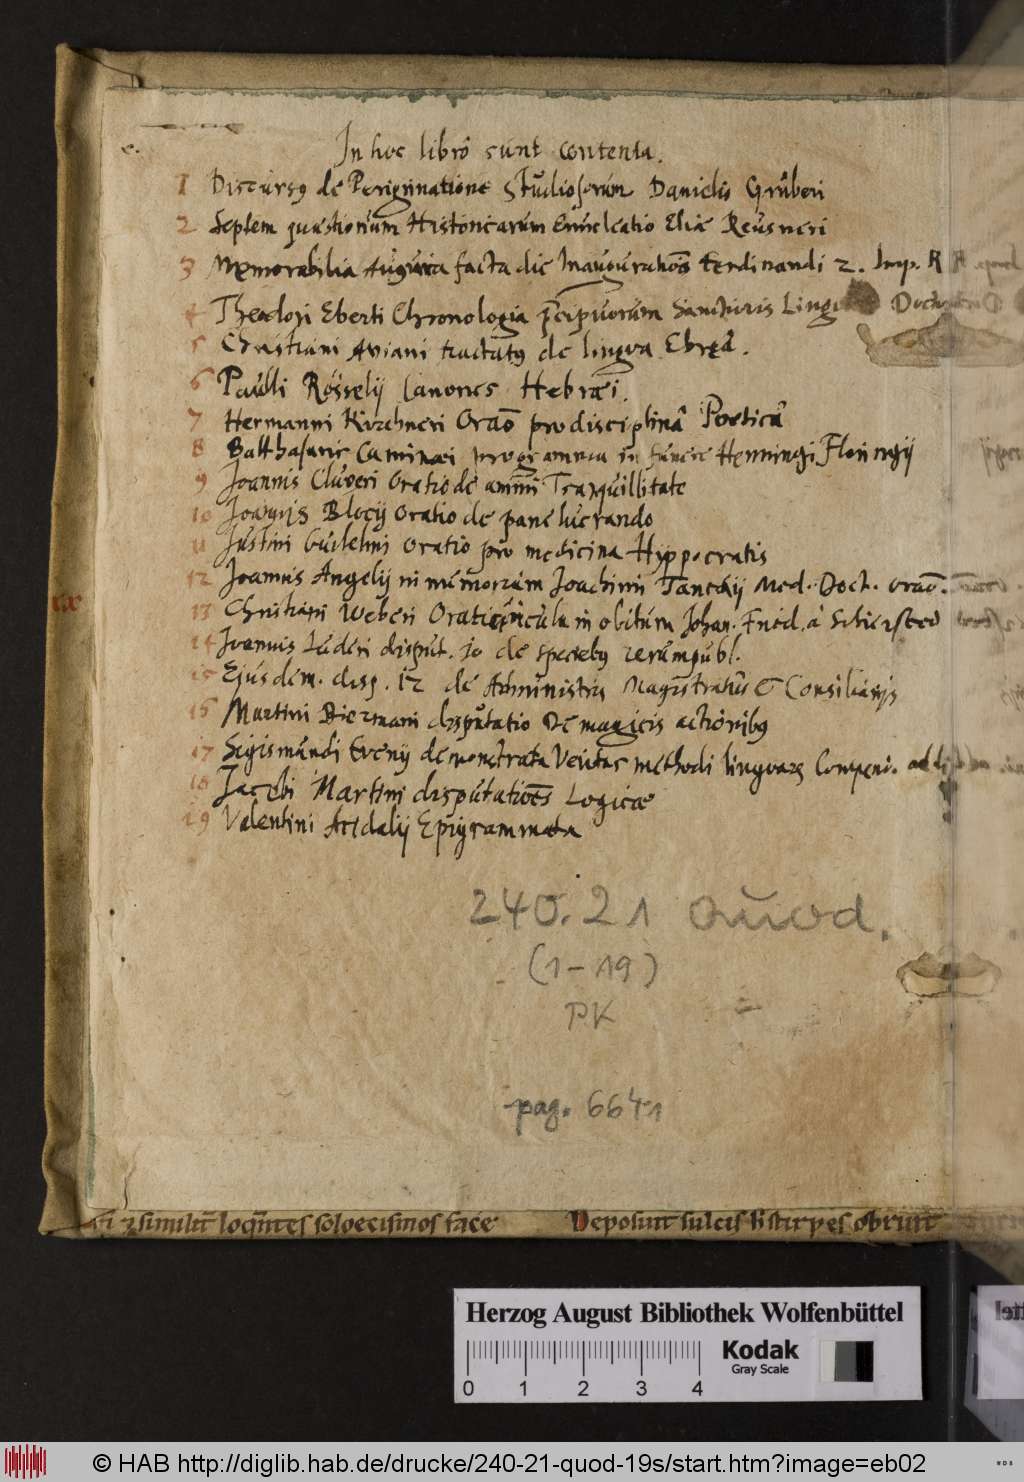 In hoc libro sunt contenta.
1 Discursus de Peregrinatione Studiosorum Danielis Gruberi
2 Septem quaestionum Historicarum Enucleatio Eliae Reusneri
3 Memorabilia Auguria facta die Inaugurationis Ferdinandi 2. Imp. R
4 Theodori Eberti Chronologia praecipuorum Sanctioris Linguae Doctorum
5 Christiani Aviani tractatus de lingua Ebreâ.
6 Paulli Rösselij Canones Hebraei.
7 Hermanni Kirchneri Oratio pro disciplinâ Poeticâ
8 Balthasaris Caminaei programma in funere Henningi Floringij
9 Joannis Cluveri Oratio de animi Tranquillitate
10 Joannis Blocij Oratio de pane lucrando
11 Justini Gulielmi Oratio pro medicina Hyppocratis
12 Joannis Angelij in memoriam Joachimi Tanckij Med. Doct. oratio.
13 Christiani Weberi Oratiuncula in obitum Johan. Frid. à Schiersted
14 Joannis Luderi disput. 10 de speciebus rerumpubl.
15 Ejusdem. disp. 12 de Administris Magistratûs & Consiliarijs
15 Martini Biermani disputatio De magicis actionibus
17 Sigismundi Evenij demonstrata Veritas methodi linguae Compend.
18 Jacobi Martini disputationes Logicae
19 Valentini Acidalij Epigrammata
240.21 Quod.
(1-19)
PK
pag. 6641
loquentes soloecismos face Deposuit sulcis stirpes obruit
Herzog August Bibliothek Wolfenbüttel
Kodak
Gray Scale
0 1 2 3 4
© HAB http://diglib.hab.de/drucke/240-21-quod-19s/start.htm?image=eb02